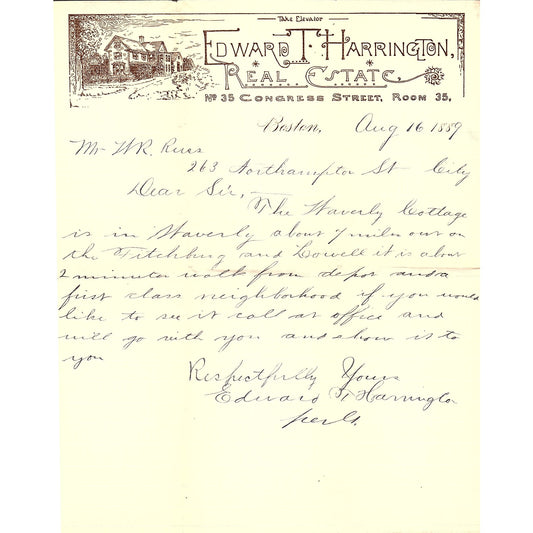 Take Elevator
EDWARD T. HARRINGTON,
REAL ESTATE,
No 35 CONGRESS STREET, ROOM 35,
Boston, Aug 16 1889
Mr W.R.
263 Northampton St City
Dear Sir,
The Waverly Cottage
is in Waverly about 7 miles out on
the Fitchburg and Lowell it is about
2 minutes walk from depot and a
first class neighborhood if you would
like to see it call at office and
will go with you and show it to
you
Respectfully Yours
Edward T Harrington
per